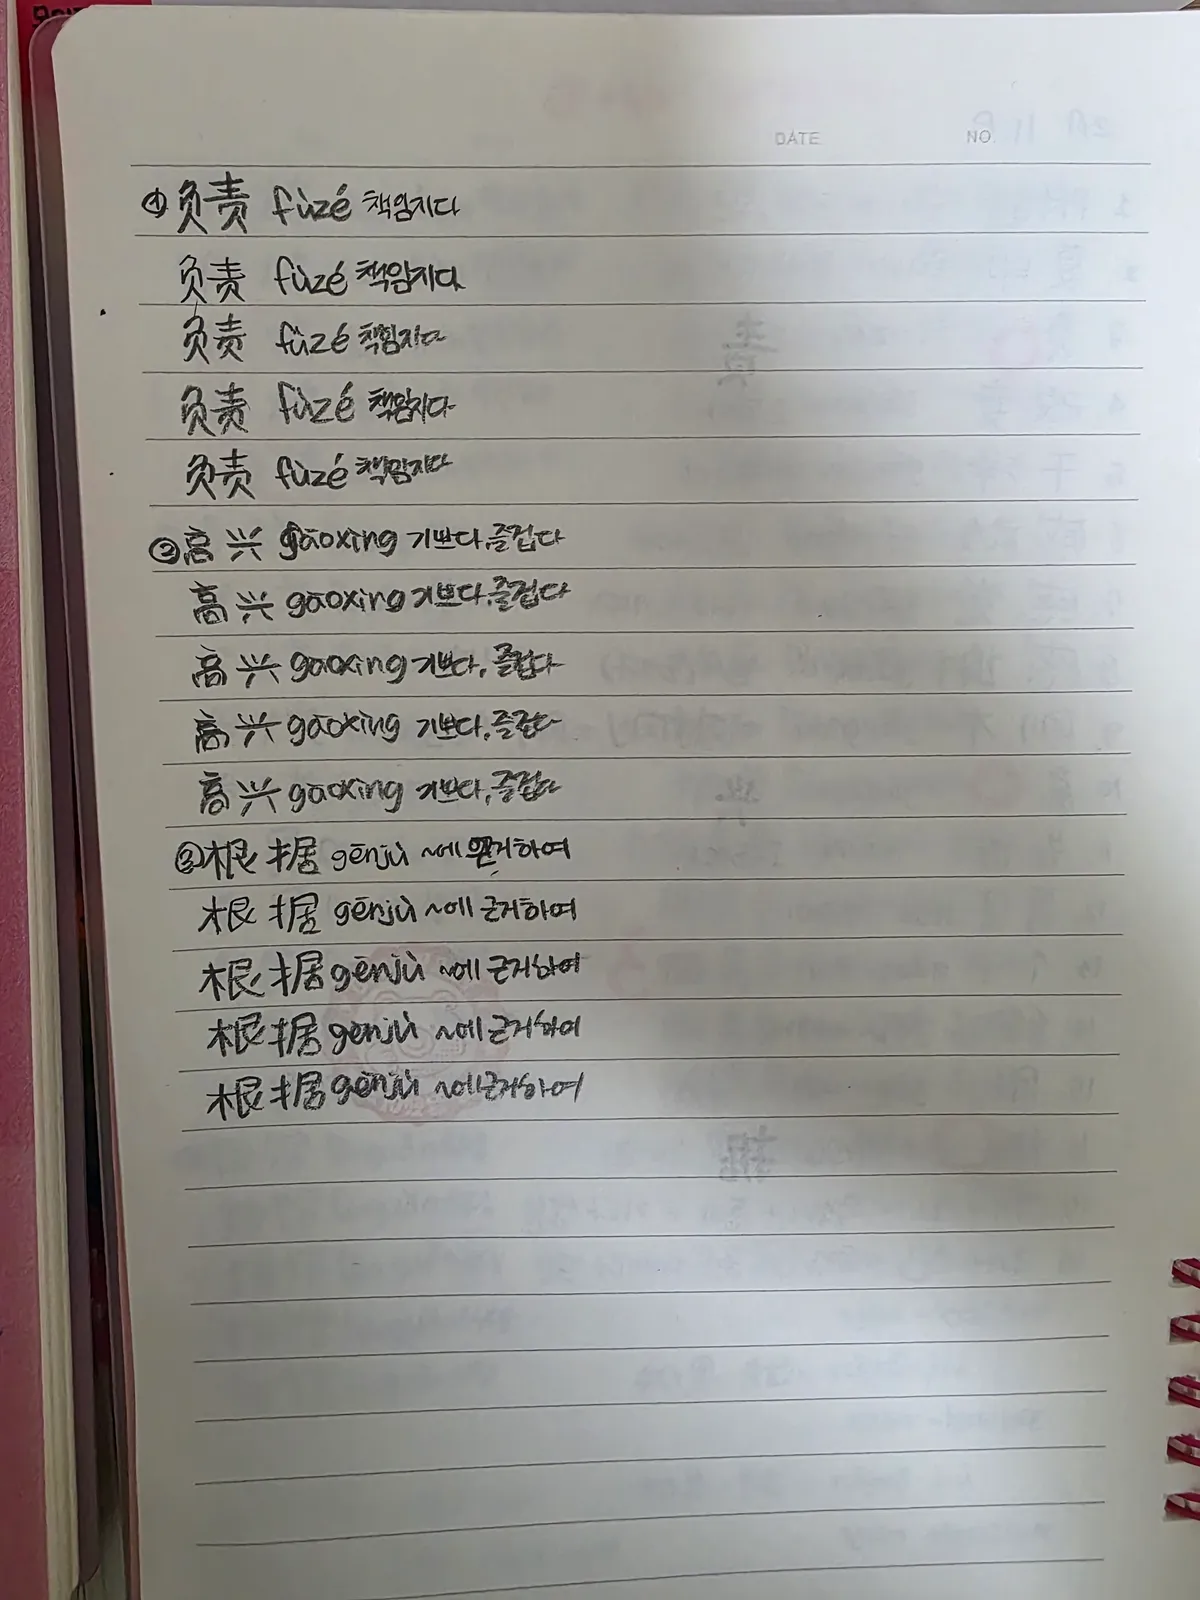 DATE NO.
① 负责 fùzé 책임지다
负责 fùzé 책임지다
负责 fùzé 책임지다
负责 fùzé 책임지다
负责 fùzé 책임지다
② 高兴 gāoxìng 기쁘다, 즐겁다
高兴 gāoxìng 기쁘다, 즐겁다
高兴 gāoxìng 기쁘다, 즐겁다
高兴 gāoxìng 기쁘다, 즐겁다
高兴 gāoxìng 기쁘다, 즐겁다
③ 根据 gēnjù ~에 근거하여
根据 gēnjù ~에 근거하여
根据 gēnjù ~에 근거하여
根据 gēnjù ~에 근거하여
根据 gēnjù ~에 근거하여